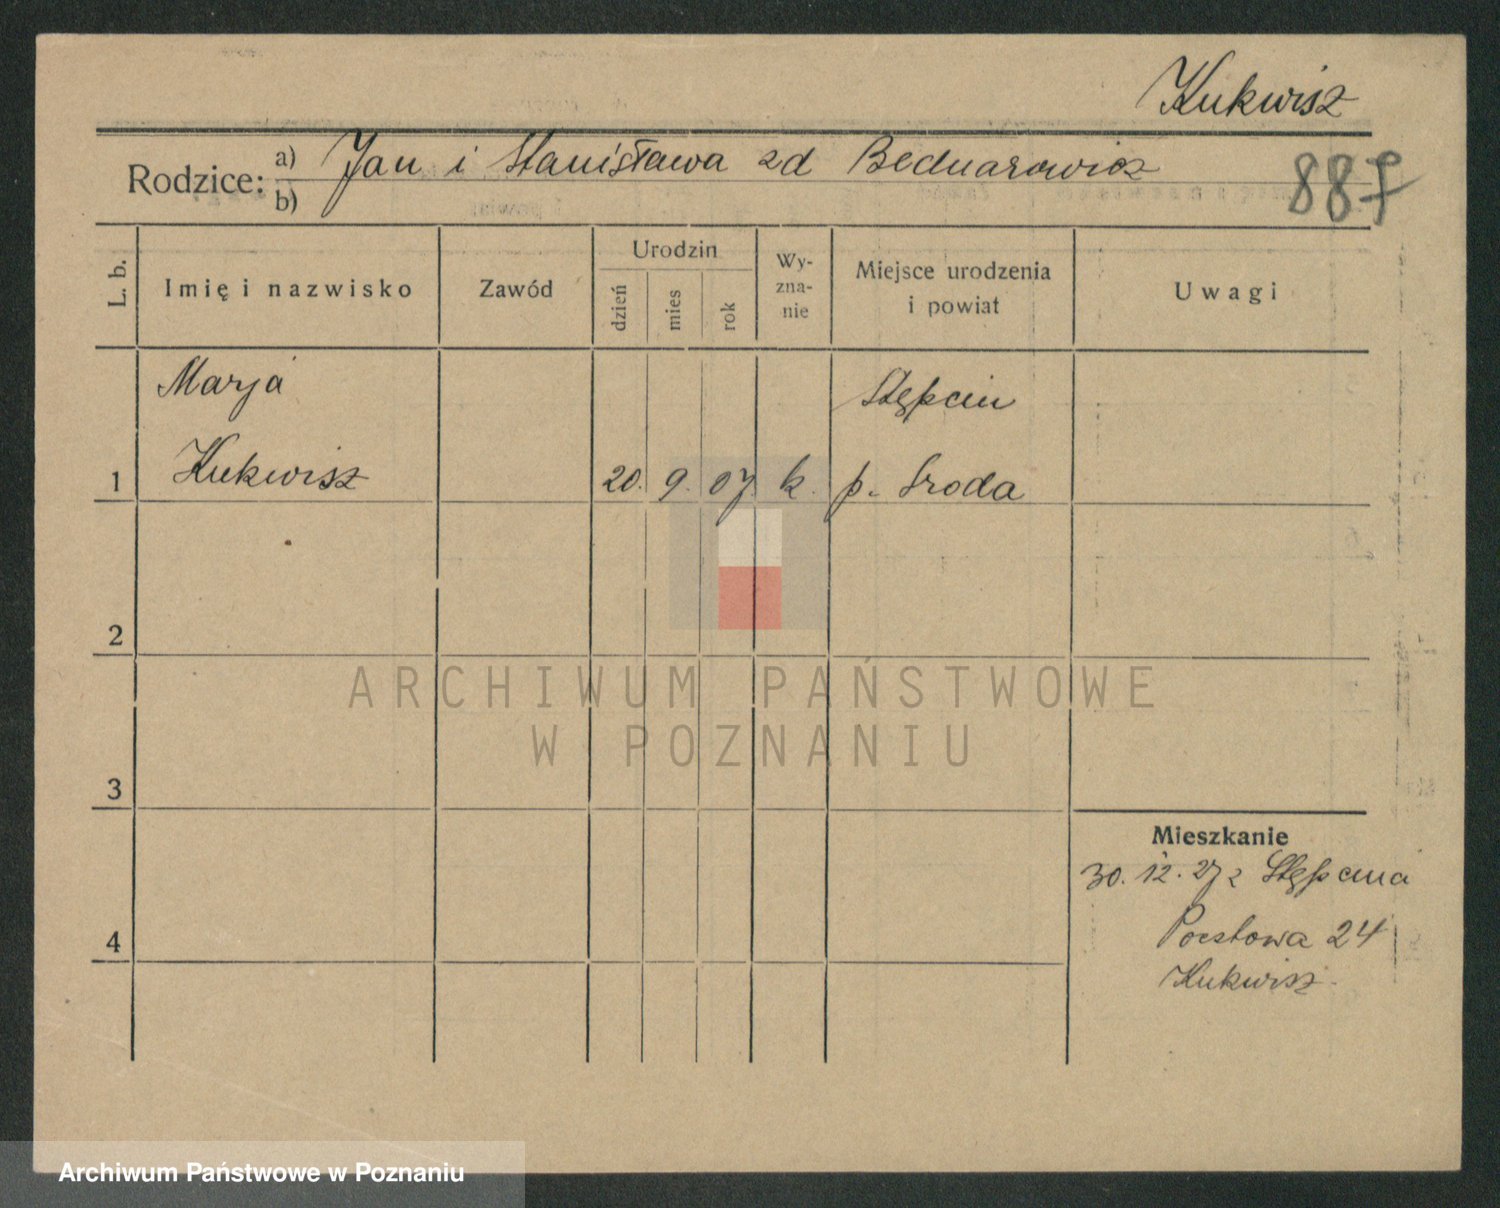 Kukwisz
Rodzice: a) Jan i Stanisława zd Bednarowicz
b)
887
L. b.
Imię i nazwisko
Zawód
Urodzin
dzień
mies
rok
Wy-
zna-
nie
Miejsce urodzenia
i powiat
Uwagi
Marja
Stępcin
1 Kukwisz 20. 9. 07 k. p. Sroda
2
ARCHIWUM PAŃSTWOWE
W POZNANIU
3
Mieszkanie
30. 12. 27 z Stępcina
4
Pocztowa 24
Kukwisz
Archiwum Państwowe w Poznaniu